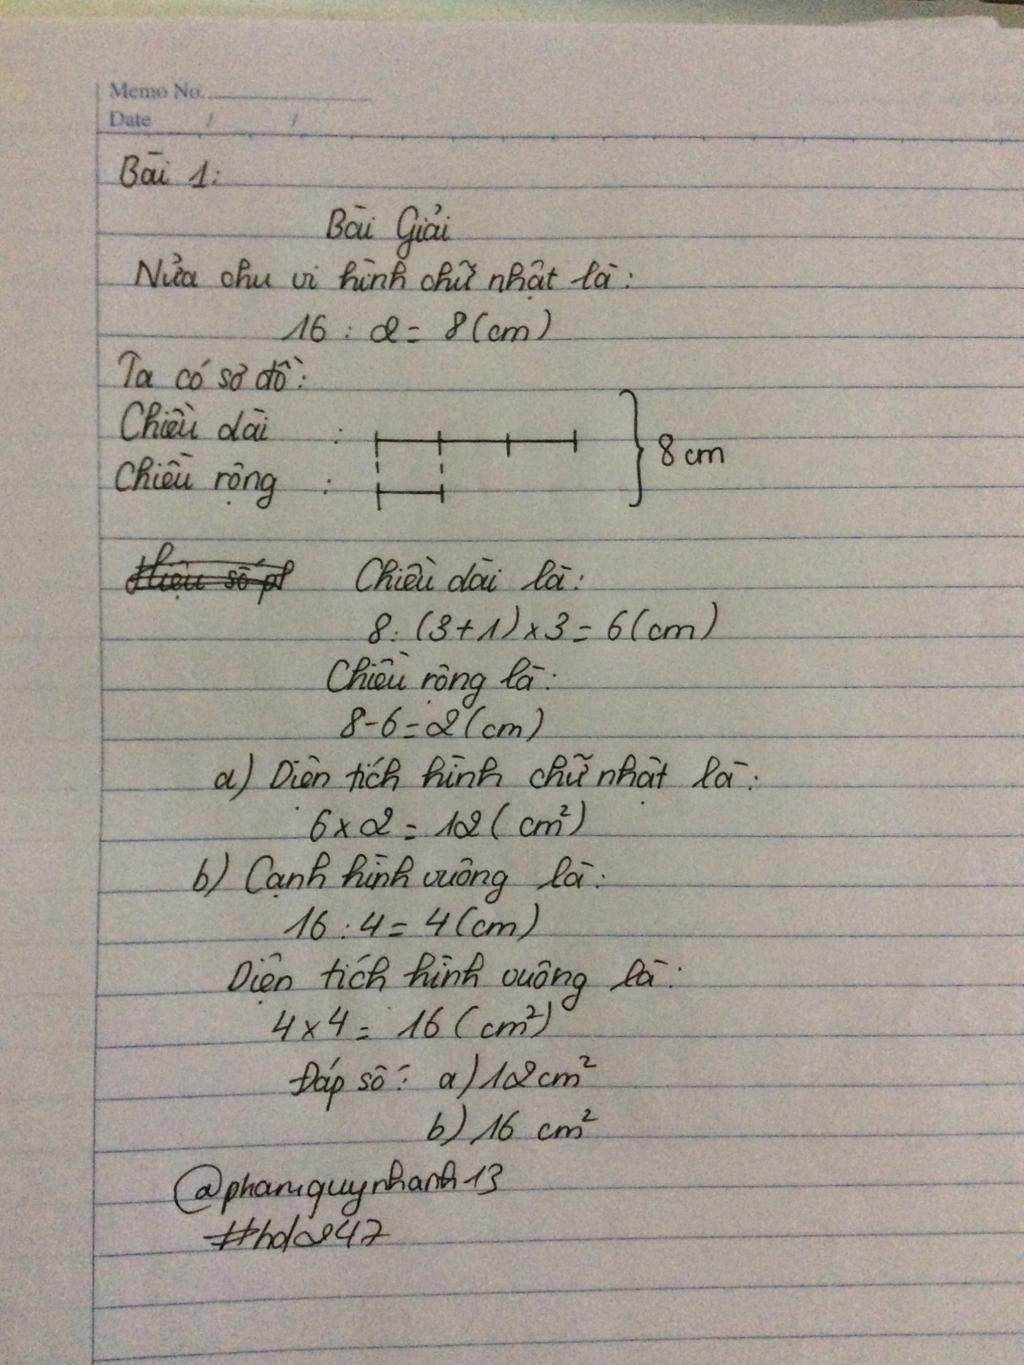 Memo No.
Date / /
Bài 1:
Bài Giải
Nửa chu vi hình chữ nhật là:
16 : 2 = 8 (cm)
Ta có sơ đồ:
Chiều dài :
8 cm
Chiều rộng :
Hiệu số p Chiều dài là:
8 : (3 + 1) x 3 = 6 (cm)
Chiều rộng là:
8 - 6 = 2 (cm)
a) Diện tích hình chữ nhật là:
6 x 2 = 12 (cm²)
b) Cạnh hình vuông là:
16 : 4 = 4 (cm)
Diện tích hình vuông là:
4 x 4 = 16 (cm²)
Đáp số: a) 12 cm²
b) 16 cm²
@phamquynhanh13
#hd247